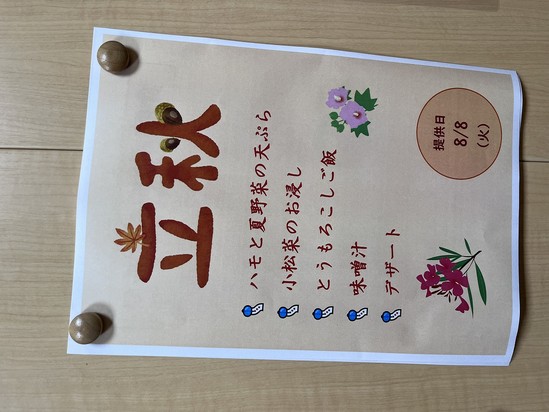 立秋
ハモと夏野菜の天ぷら
小松菜のお浸し
とうもろこしご飯
味噌汁
デザート
提供日
8/8
(火)